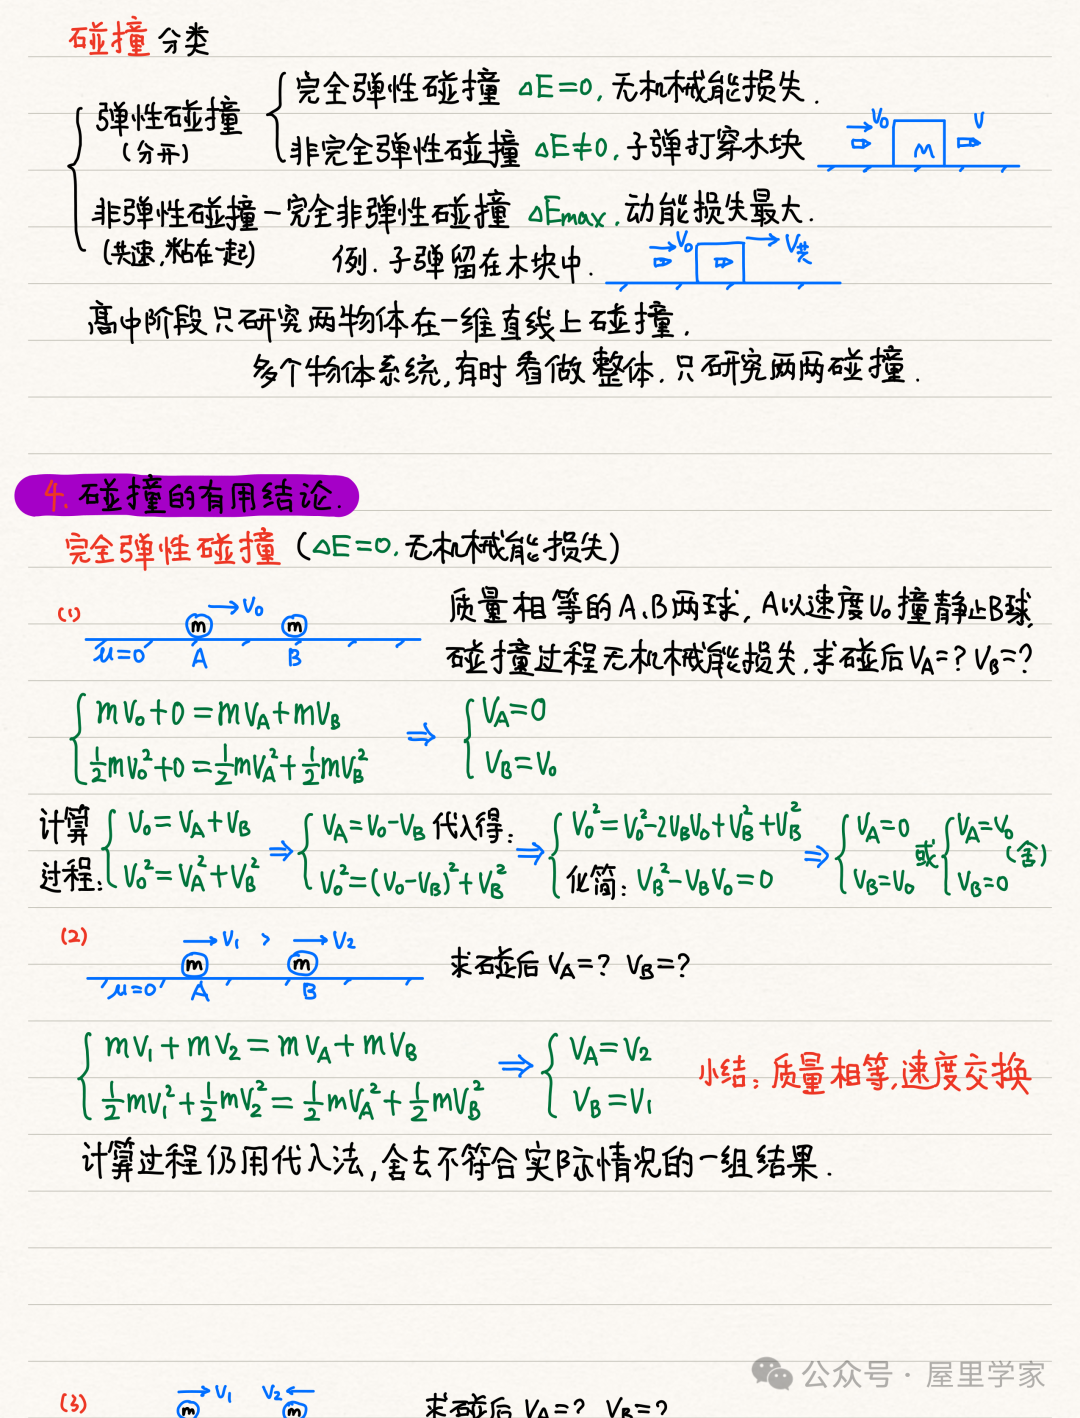 碰撞分类
弹性碰撞
(分开)
完全弹性碰撞 △E=0,无机械能损失.
非完全弹性碰撞 △E≠0,子弹打穿木块
V₀ M V
非弹性碰撞-完全非弹性碰撞 △Emax,动能损失最大.
(共速,粘在一起)
例.子弹留在木块中.
V₀ V共
高中阶段只研究两物体在一维直线上碰撞.
多个物体系统,有时看做整体.只研究两两碰撞.
4.碰撞的有用结论.
完全弹性碰撞(△E=0.无机械能损失)
(1) V₀ m m
μ=0 A B
质量相等的A.B两球,A以速度V₀撞静止B球,
碰撞过程无机械能损失.求碰后VA=? VB=?
mV₀+0=mVA+mVB
½mV₀²+0=½mVA²+½mVB²
⇒ VA=0
VB=V₀
计算过程:
V₀=VA+VB
V₀²=VA²+VB²
⇒ VA=V₀-VB 代入得:
V₀²=(V₀-VB)²+VB²
⇒ V₀²=V₀²-2VBV₀+VB²+VB²
化简:VB²-VBV₀=0
⇒ VA=0
VB=V₀
或 VA=V₀
VB=0
(舍)
(2) V₁ > V₂
m m
μ=0 A B
求碰后VA=? VB=?
mV₁+mV₂=mVA+mVB
½mV₁²+½mV₂²=½mVA²+½mVB²
⇒ VA=V₂
VB=V₁
小结:质量相等,速度交换
计算过程仍用代入法,舍去不符合实际情况的一组结果.
(3) V₁ V₂
m m
求碰后VA=? VB=?
公众号·屋里学家